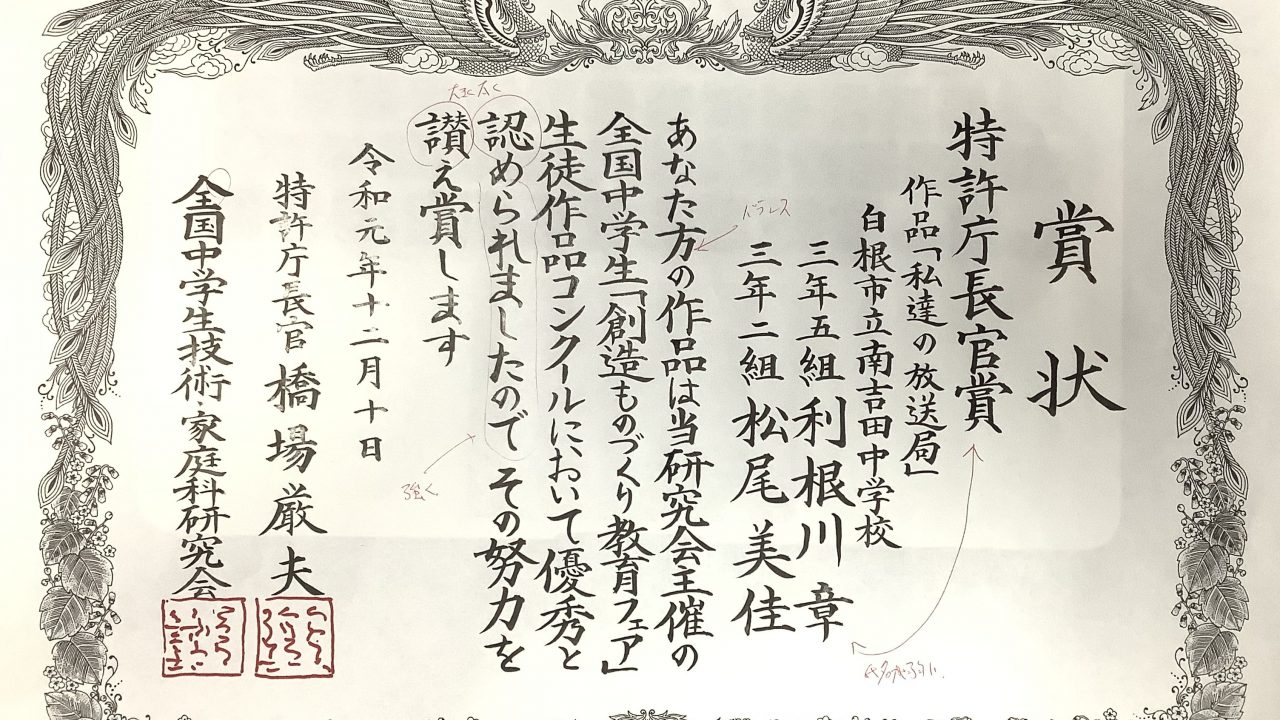 賞状
特許庁長官賞
作品「私達の放送局」
白根市立南吉田中学校
三年五組 利根川章
三年二組 松尾美佳
あなた方の作品は当研究会主催の
全国中学生「創造ものづくり教育フェア」
生徒作品コンクールにおいて優秀と
認められましたので その努力を
讃え賞します
令和元年十二月十日
特許庁長官 橋場厳夫
全国中学生技術・家庭科研究会
強く